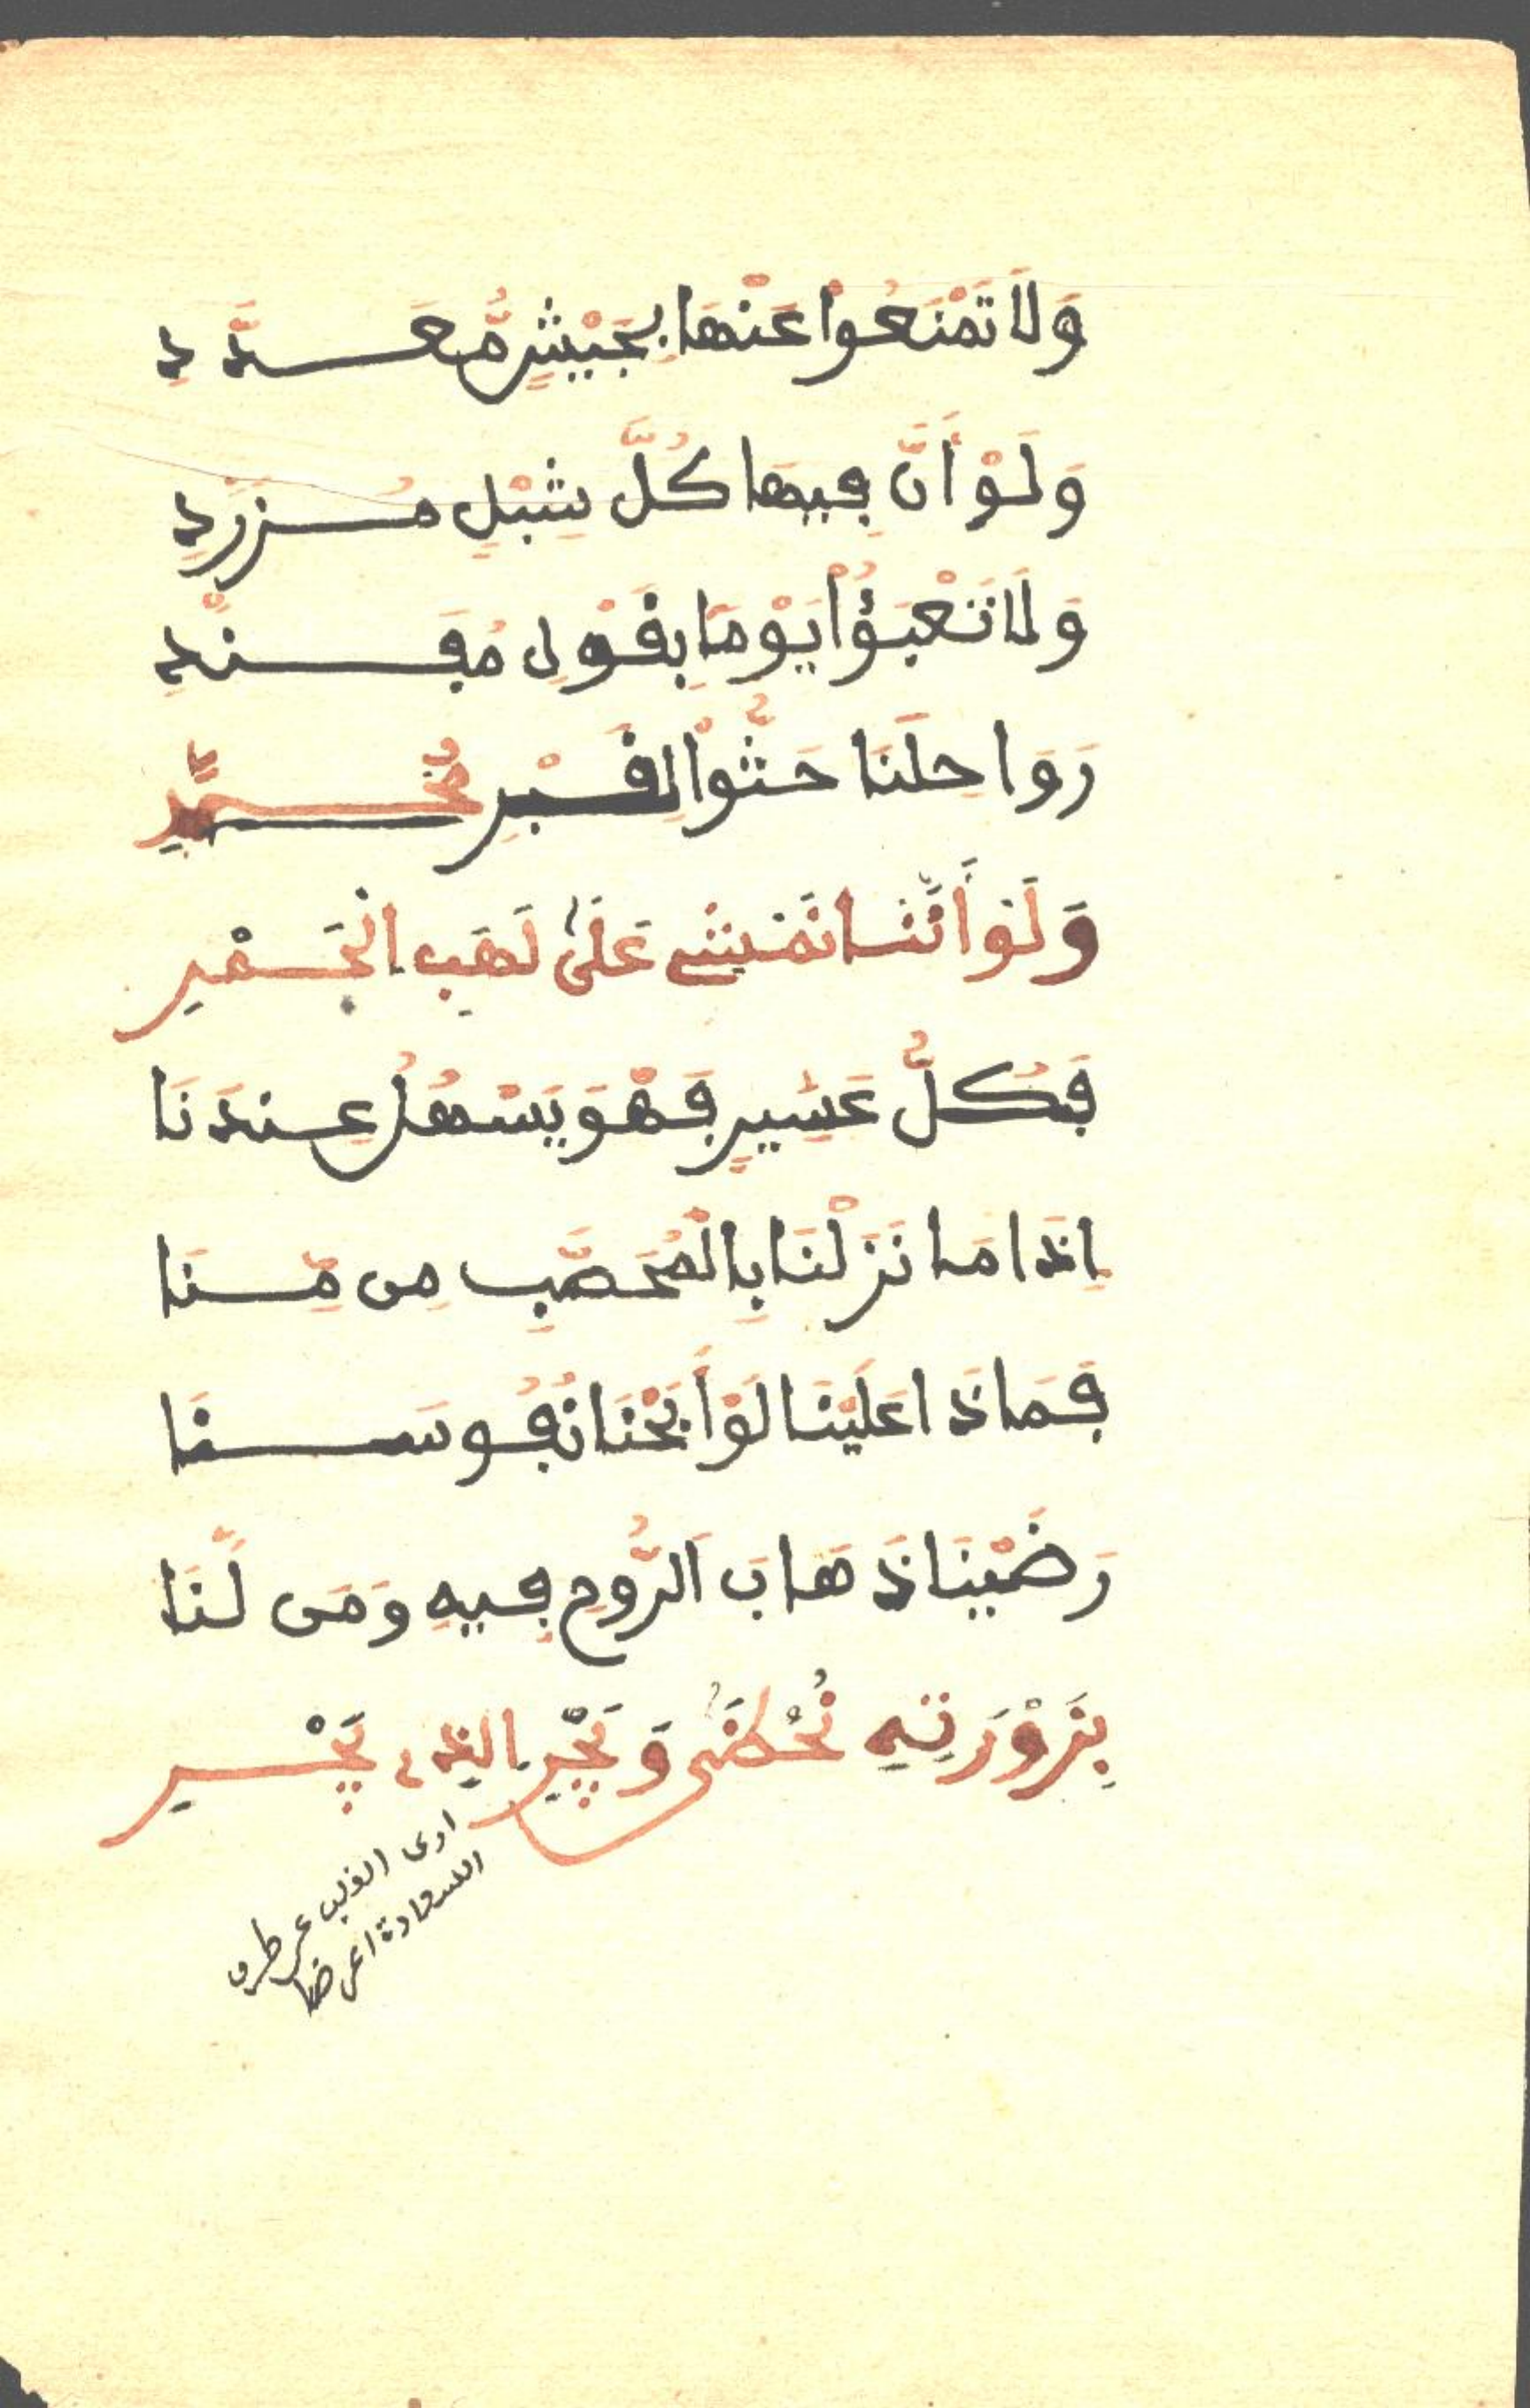 وَلَا تَمْنَعُوا عَنْهَا بِجَيْشٍ مُّعَدَّدِ
وَلَوْ أَنَّ فِيهَا كُلَّ شِبْلٍ مُزَرَّدِ
وَلَا تَعْبَؤُا يَوْمًا بِقَوْلِ مُفَنِّدِ
رَوَاحِلَنَا حَثُّوا لِقَبْرِ مُحَمَّدٍ
وَلَوْ أَنَّنَا نَمْشِي عَلَىٰ لَهَبِ الْجَمْرِ
فَكُلُّ عَسِيرٍ فَهْوَ يَسْهُلُ عِندَنَا
إِذَا مَا نَزَلْنَا بِالْمُحَصَّبِ مِن مِّنَا
فَمَاذَا عَلَيْنَا لَوْ أَبَحْنَا نُفُوسَنَا
رَضَيْنَا ذَهَابَ الرُّوحِ فِيهِ وَمَن لَّنَا
بِزَوْرَتِهِ نُحْظَى وَيَجْرِ الذى يَجْرِ
ارى القلب عن طرق
السعادة اعرضا